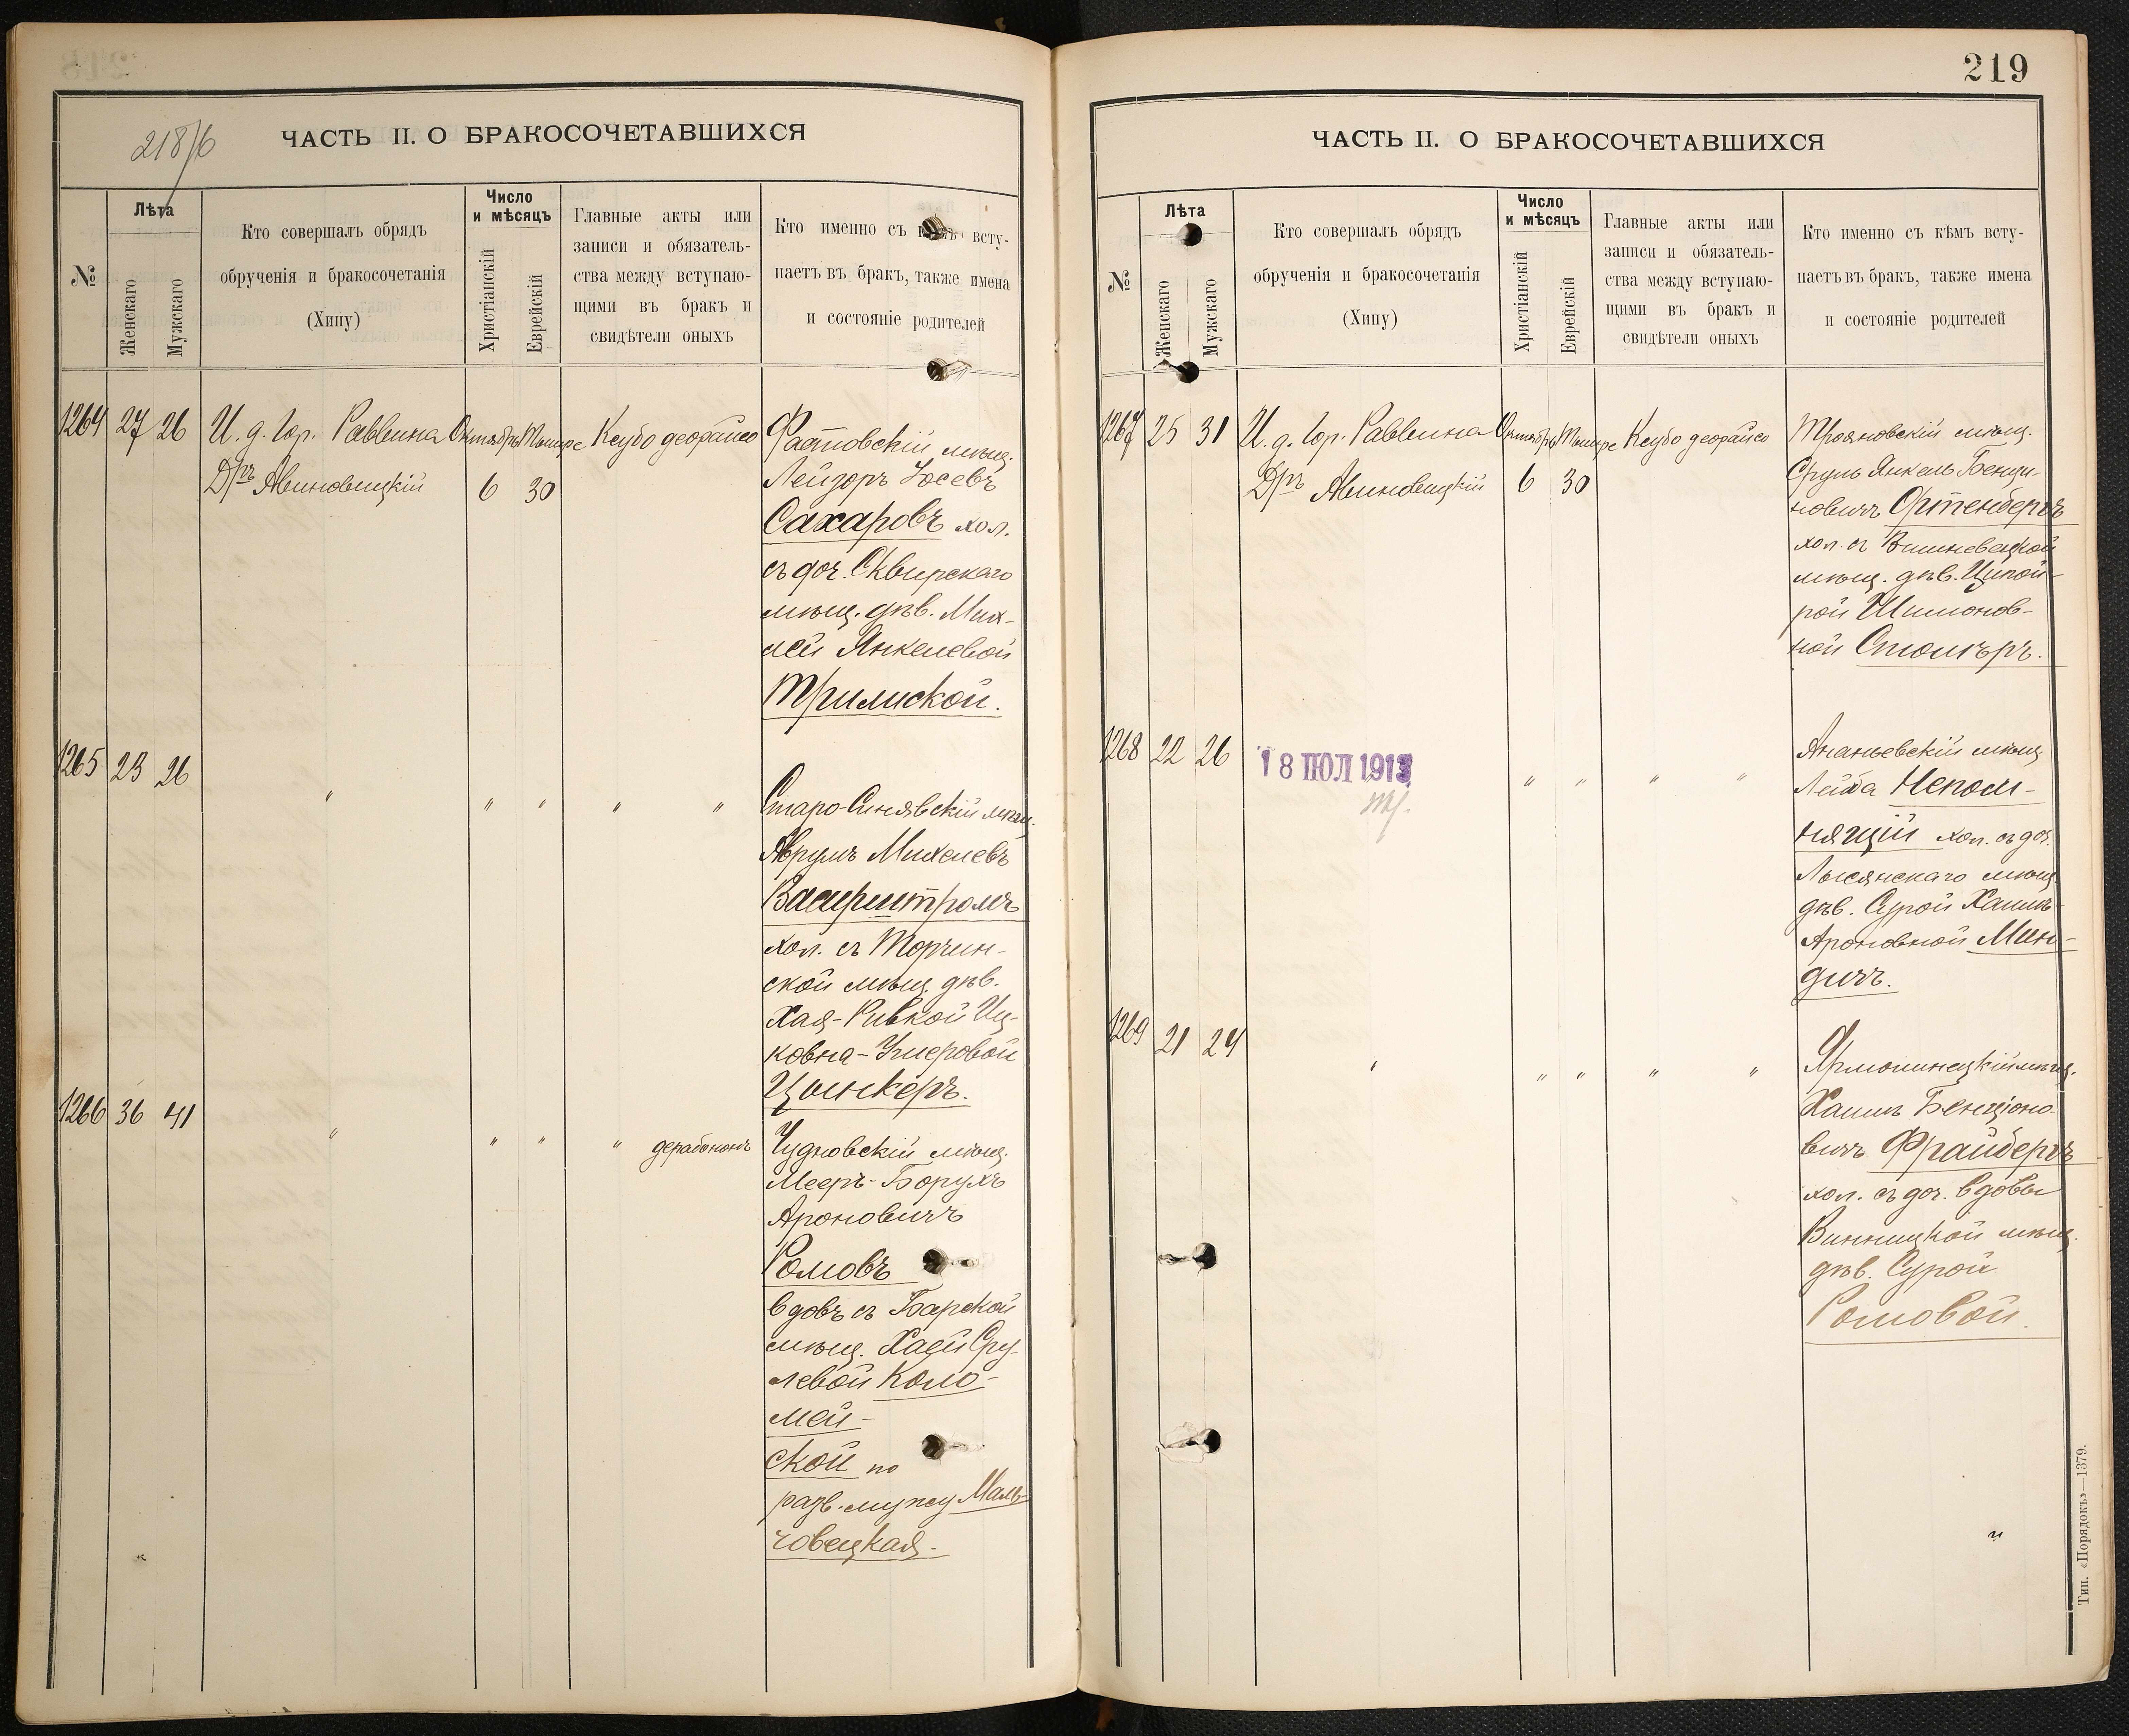 218/б
ЧАСТЬ II. О БРАКОСОЧЕТАВШИХСЯ
№
Лѣта
Женскаго
Мужскаго
Кто совершалъ обрядъ
обрученія и бракосочетанія
(Хипу)
Число
и мѣсяцъ
Христіанскій
Еврейскій
Главные акты или
записи и обязатель-
ства между вступаю-
щими въ бракъ и
свидѣтели оныхъ
Кто именно съ всту-
паетъ въ бракъ, также имена
и состояніе родителей
1264 27 26 И. д. Гор. Раввина Октябрь Тишре Ксубо деорайсо
Дръ Явиновицкій 6 30
Фастовскій мѣщ.
Лейзоръ Іосевъ
Сахаровъ хол.
съ доч. Сквирскаго
мѣщ. дѣв. Мих-
лей Янкелевой
Трилиской.
1265 23 26
" " " " "
Старо-Синявскій мѣщ.
Аврумъ Михелевъ
Васерштромъ
хол. съ Торчин-
ской мѣщ. дѣв.
Хая-Ривкой Иц-
ковна-Умеровой
Цолнкеръ.
1266 36 41
" " " " дерабононъ
Чудновскій мѣщ.
Мееръ-Борухъ
Ароновичъ
Ромовъ
вдовъ съ Барской
мѣщ. Хаей Сру-
левой Коло-
мей-
ской по
разв. мужу Маль-
човецкая.
219
ЧАСТЬ II. О БРАКОСОЧЕТАВШИХСЯ
№
Лѣта
Женскаго
Мужскаго
Кто совершалъ обрядъ
обрученія и бракосочетанія
(Хипу)
Число
и мѣсяцъ
Христіанскій
Еврейскій
Главные акты или
записи и обязатель-
ства между вступаю-
щими въ бракъ и
свидѣтели оныхъ
Кто именно съ кѣмъ всту-
паетъ въ бракъ, также имена
и состояніе родителей
1267 25 31 И. д. Гор. Раввина Октябрь Тишре Ксубо деорайсо
Дръ Явиновицкій 6 30
Трояновскій мѣщ.
Сруль Янкель Бенци-
новичъ Ортенбергъ
хол. съ Вишневецкой
мѣщ. дѣв. Ципой-
рой Шимонов-
ной Столяръ.
1268 22 26
18 ІЮЛ 1913
" " " "
Ананьевскій мѣщ.
Лейба Непом-
нящій хол. съ доч.
Лысянскаго мѣщ.
дѣв. Сурой Хаимъ-
Ароновной Мин-
дичъ.
1269 21 24
" " " " "
Ярмолинецкій мѣщ.
Хаимъ Бенціоно-
вичъ Фрайбергъ
хол. съ доч. вдовы
Винницкой мѣщ.
дѣв. Сурой
Ромовой.
Тип. «Порядокъ»—1379.